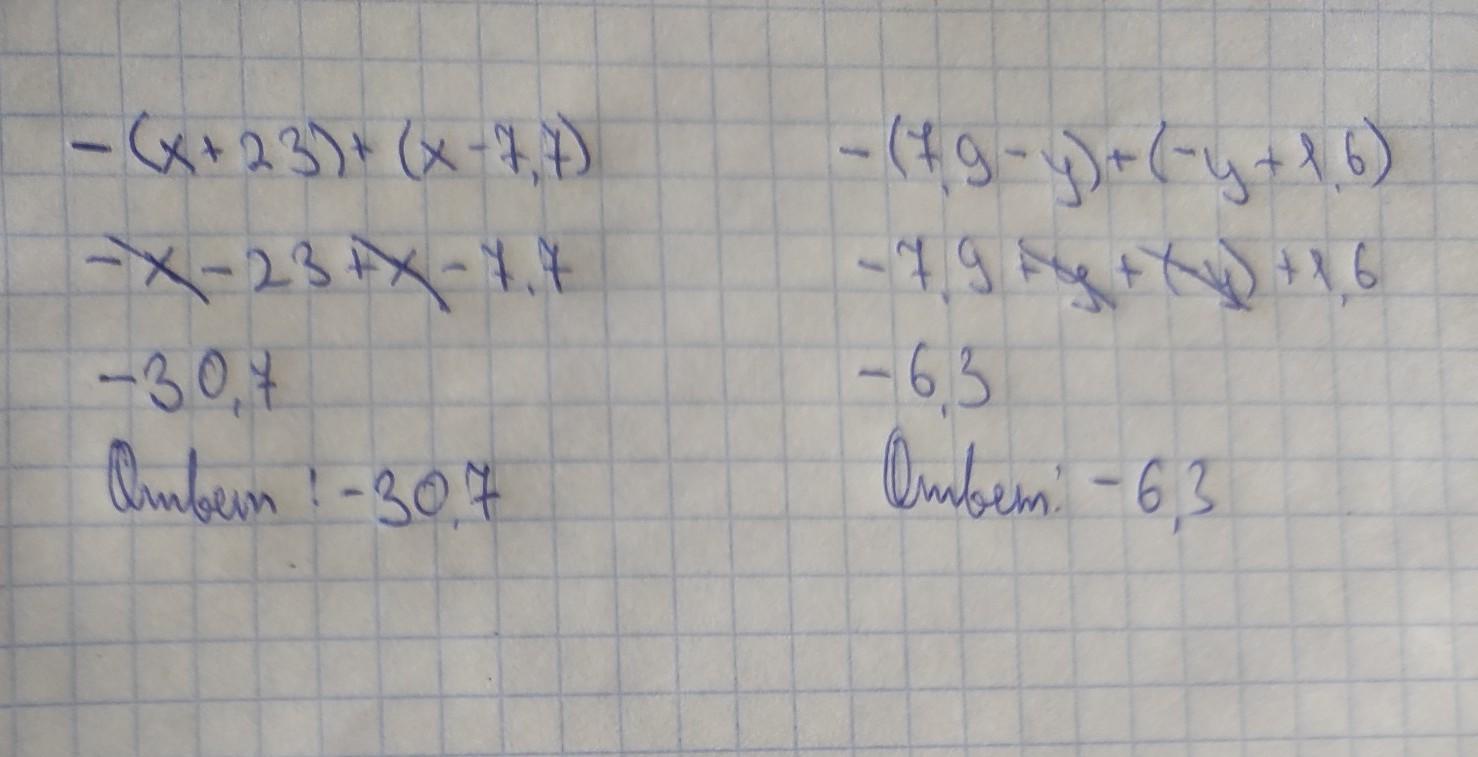 -(x+23)+(x-7,7)
-x-23+x-7,7
-30,7
Ответ: -30,7
-(7,9-y)+(-y+1,6)
-7,9+y+(-y)+1,6
-6,3
Ответ: -6,3